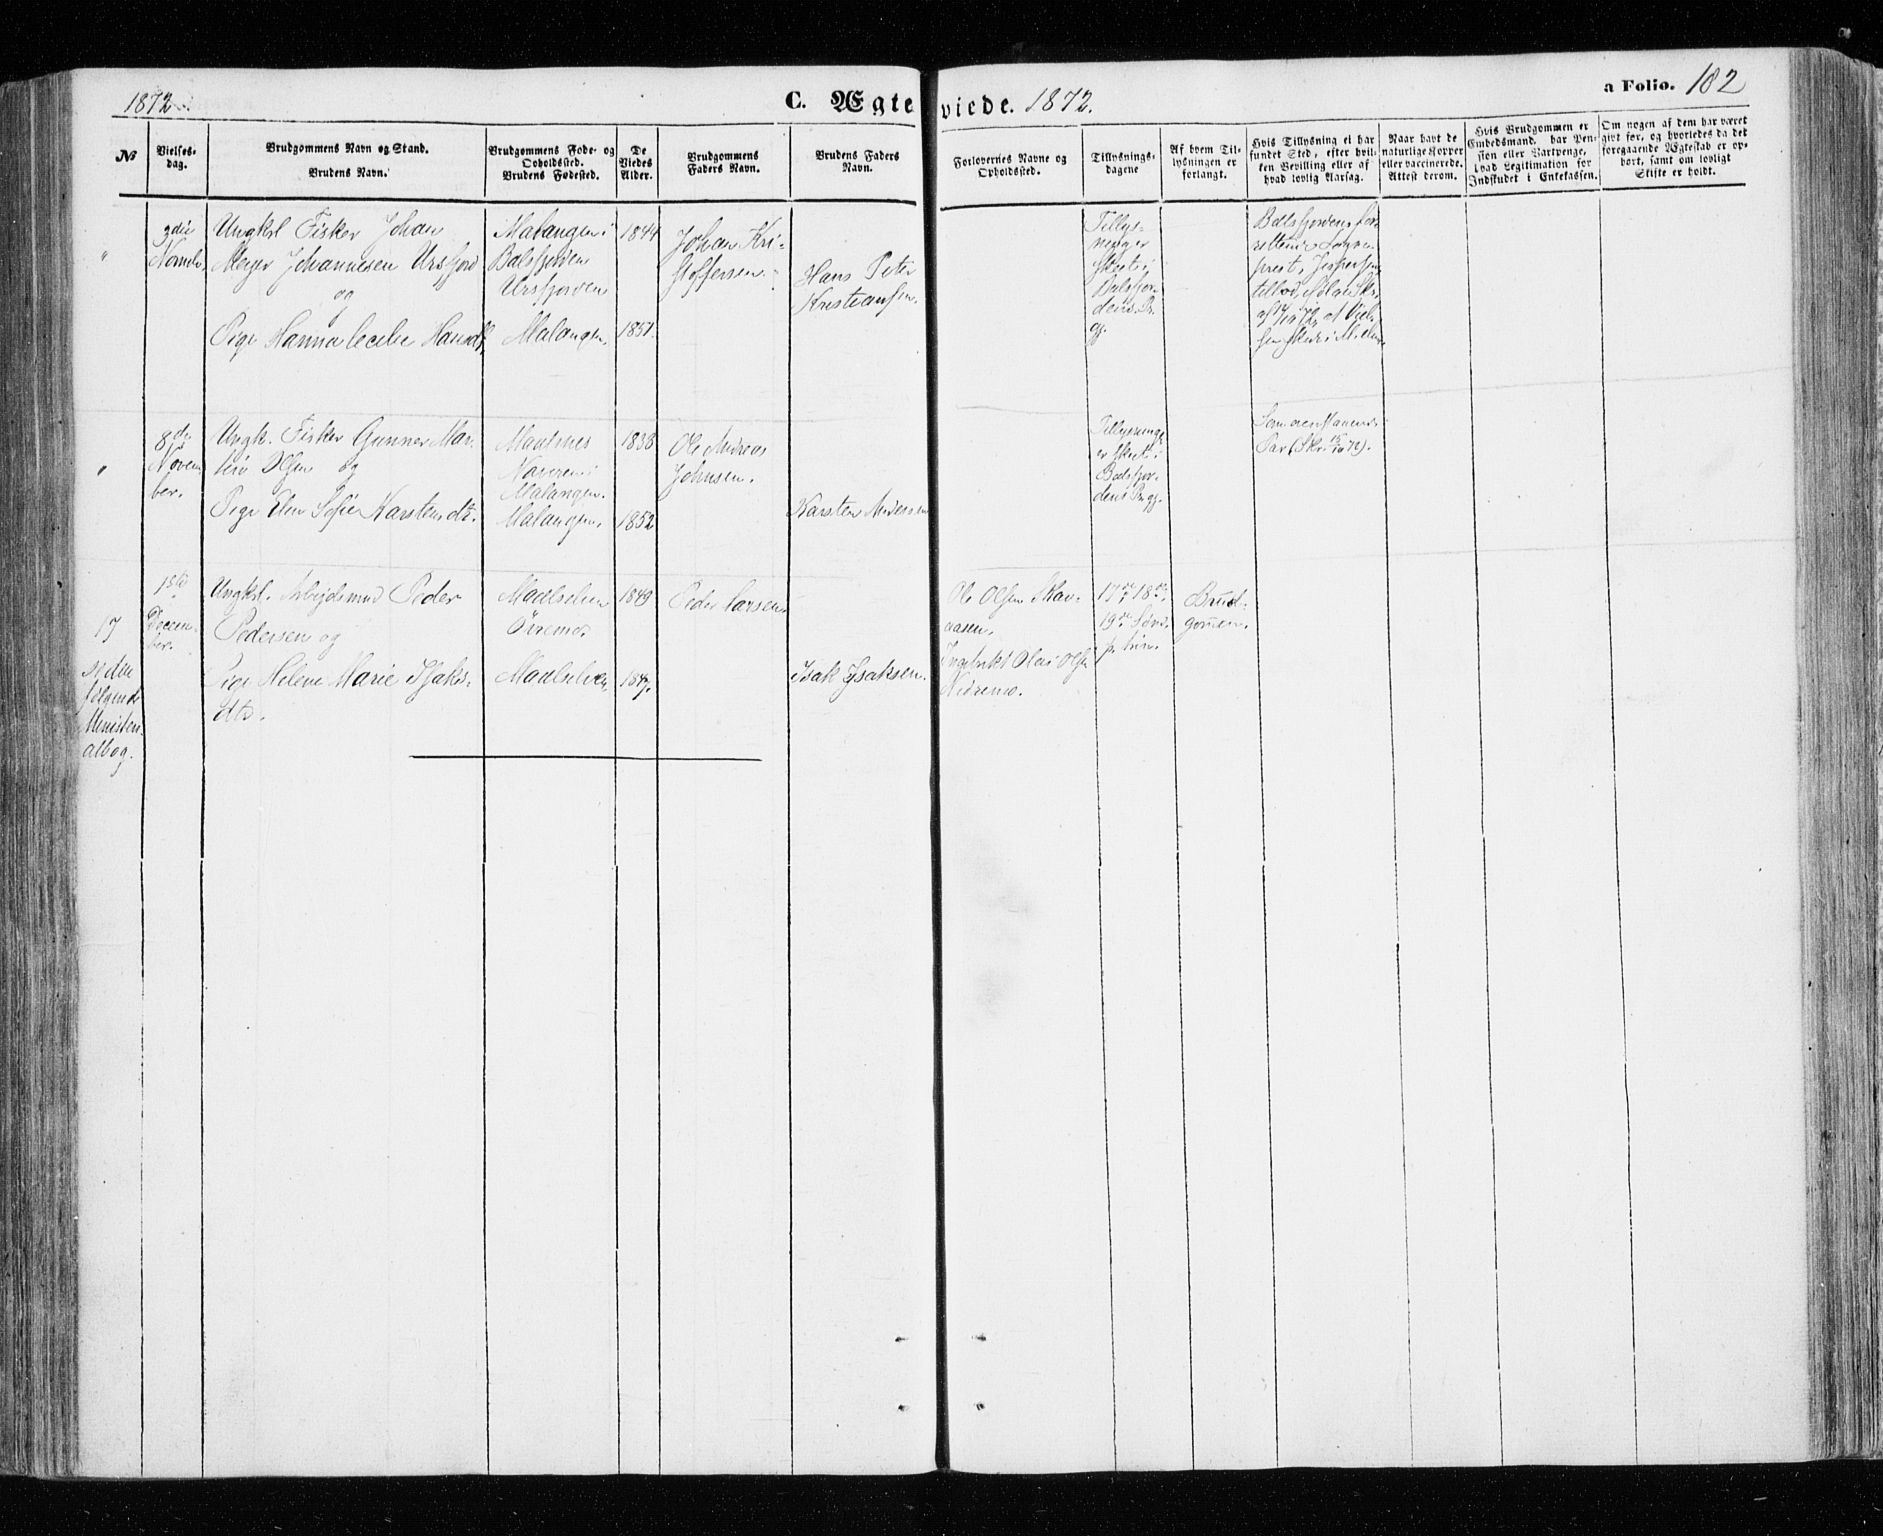 1872.
C. Ægteviede. 1872.
a Folio. 182
No
Vielses-
dag.
Brudgommens Navn og Stand.
Brudens Navn.
Brudgommens Føde- og
Opholdssted.
Brudens Fødested.
De
Viedes
Alder.
Brudgommens
Faders Navn.
Brudens Faders
Navn.
Forlovernes Navne og
Opholdssted.
Tillysnings-
dagene
Af hvem Til-
lysningen er
forlangt.
Hvis Tillysning ei har
fundet Sted, efter hvil-
ken Bevilling eller af
hvad lovlig Aarsag.
Naar havt de
naturlige Kopper
eller vaccinerede.
Attest derom.
Hvis Brudgommen er
Embedsmand, har Pen-
sion eller Vartpenge,
hvad Legitimation for
Indskudet i Enkekassen.
Om nogen af dem har været
givt før, og hvorledes da det
foregaaende Ægteskab er op-
hørt, samt om lovligt
Skifte er holdt.
"
Novmbr.
Ungkl Fisker Johan
Meyer Johannesen Ursfjord
og
Pige Hanna Cecilie Hansdt.
Malangen i
Balsfjorden
Ursfjorden
Malangen.
1844
1851.
Johan Kri-
stoffersen.
Hans Peter
Kristiansen.
Tillys-
ning er
skeet i
Balsfjor-
dens Pr.
gj.
Balsfjordens
prest, Jespersen
"
8de
Novem
ber.
Ungk. Fisker Gunner Mar-
tin Olsen og
Pige Elen Sofie Karstensdt.
Malangen.
Malangen.
1838
1852
Ole Andreas
Johnsen.
Karsten
Tillysning
er skeet i
Balsfjor-
dens Pr.gj.
Som ovenstaaende
Par (Skr. 15/10 72).
17
se den
følgende
Ministeri-
albog.
1ste
Decem-
ber.
Ungkl. Arbejdsmand Peder
Pedersen og
Pige Helene Marie Isaks-
dtr.
Maalselven
Maalselven
1849
184
Peder Larsen
Isak Isaksen.
Ole Olsen
aasen.
Ingebrikt Olai Olsen
17de 18de
19de Sønd.
p. trin.
Brud-
gommen.